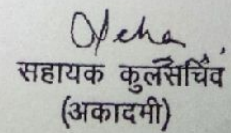 सहायक कुलसचिव
(अकादमी)